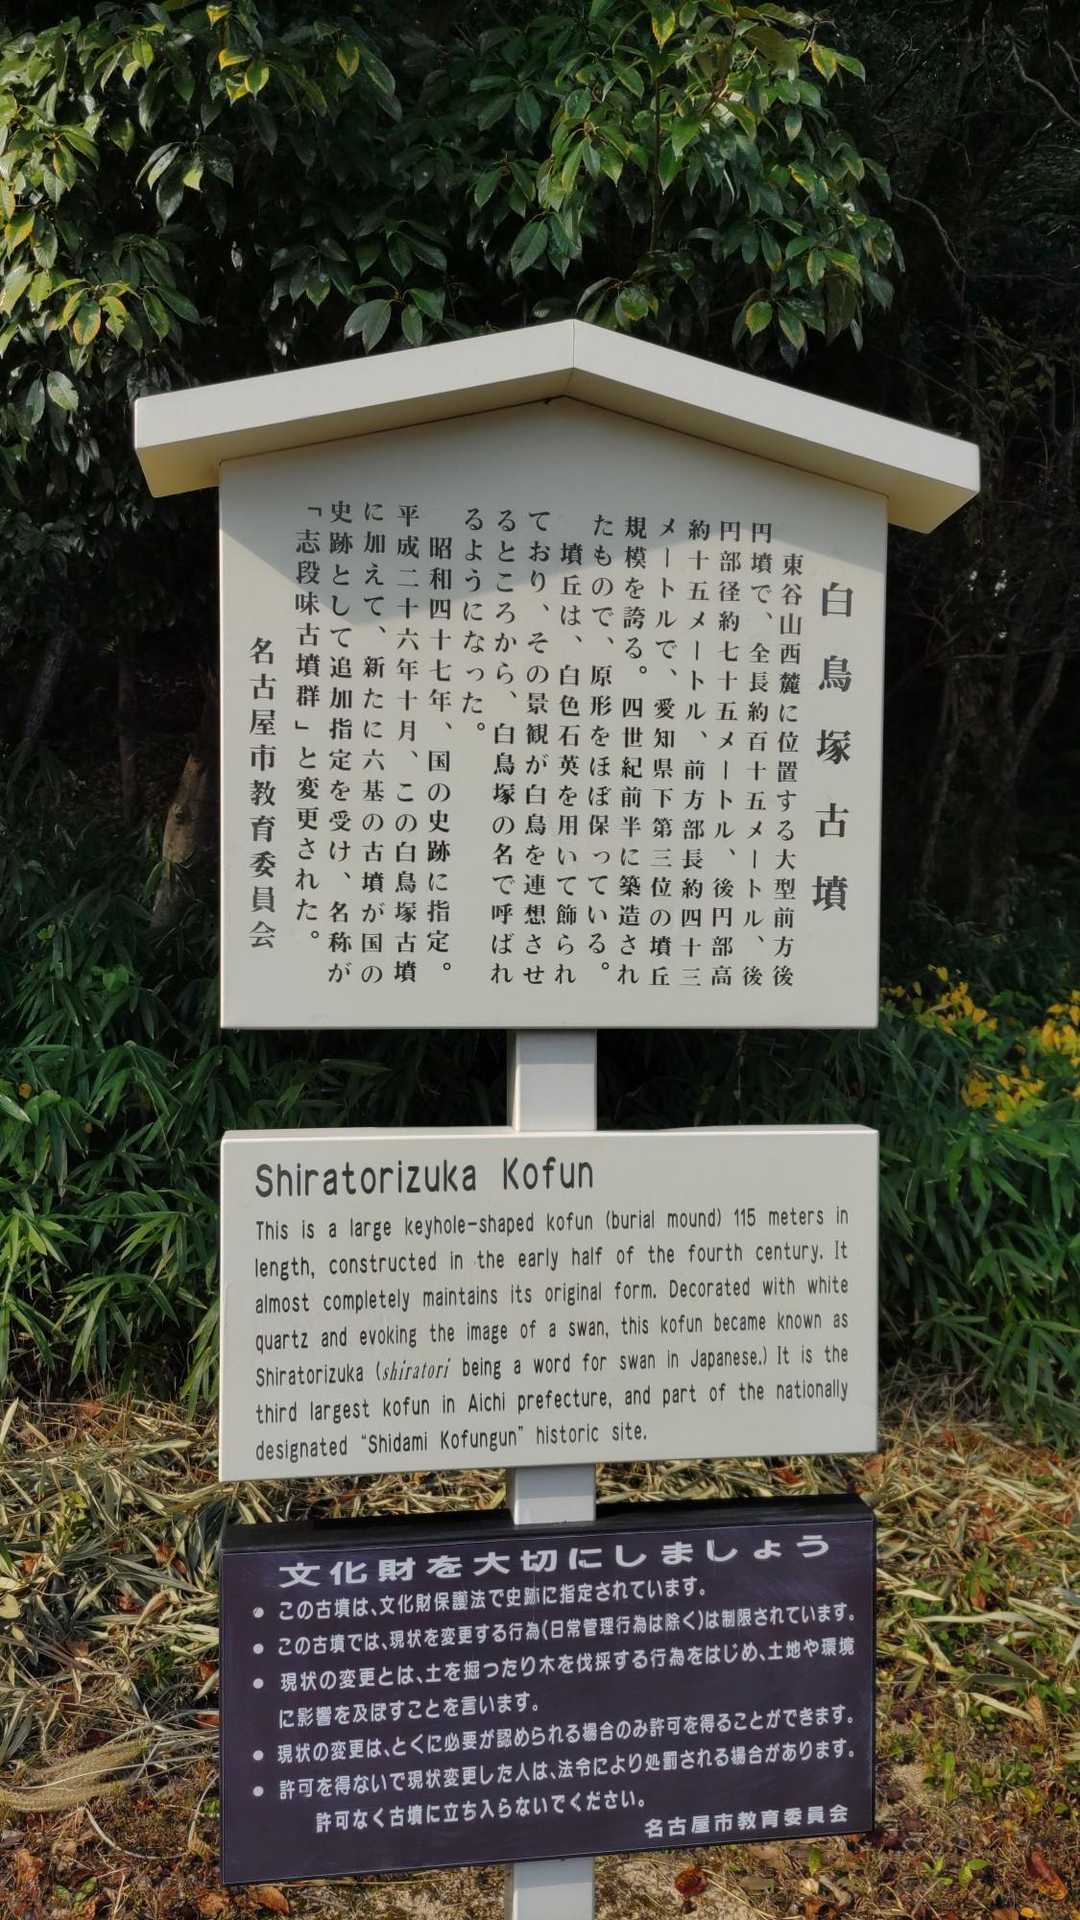 白鳥塚古墳
東谷山西麓に位置する大型前方後
円墳で、全長約百十五メートル、後
円部径約七十五メートル、後円部高
約十五メートル、前方部長約四十三
メートルで、愛知県下第三位の墳丘
規模を誇る。四世紀前半に築造され
たもので、原形をほぼ保っている。
墳丘は、白色石英を用いて飾られ
ており、その景観が白鳥を連想させ
るところから、白鳥塚の名で呼ばれ
るようになった。
昭和四十七年、国の史跡に指定。
平成二十六年十月、この白鳥塚古墳
に加えて、新たに六基の古墳が国の
史跡として追加指定を受け、名称が
「志段味古墳群」と変更された。
名古屋市教育委員会
Shiratorizuka Kofun
This is a large keyhole-shaped kofun (burial mound) 115 meters in
length, constructed in the early half of the fourth century. It
almost completely maintains its original form. Decorated with white
quartz and evoking the image of a swan, this kofun became known as
Shiratorizuka (shiratori being a word for swan in Japanese.) It is the
third largest kofun in Aichi prefecture, and part of the nationally
designated “Shidami Kofungun” historic site.
文化財を大切にしましょう
● この古墳は、文化財保護法で史跡に指定されています。
● この古墳では、現状を変更する行為(日常管理行為は除く)は制限されています。
● 現状の変更とは、土を掘ったり木を伐採する行為をはじめ、土地や環境
に影響を及ぼすことを言います。
● 現状の変更は、とくに必要が認められる場合のみ許可を得ることができます。
● 許可を得ないで現状変更した人は、法令により処罰される場合があります。
許可なく古墳に立ち入らないでください。
名古屋市教育委員会